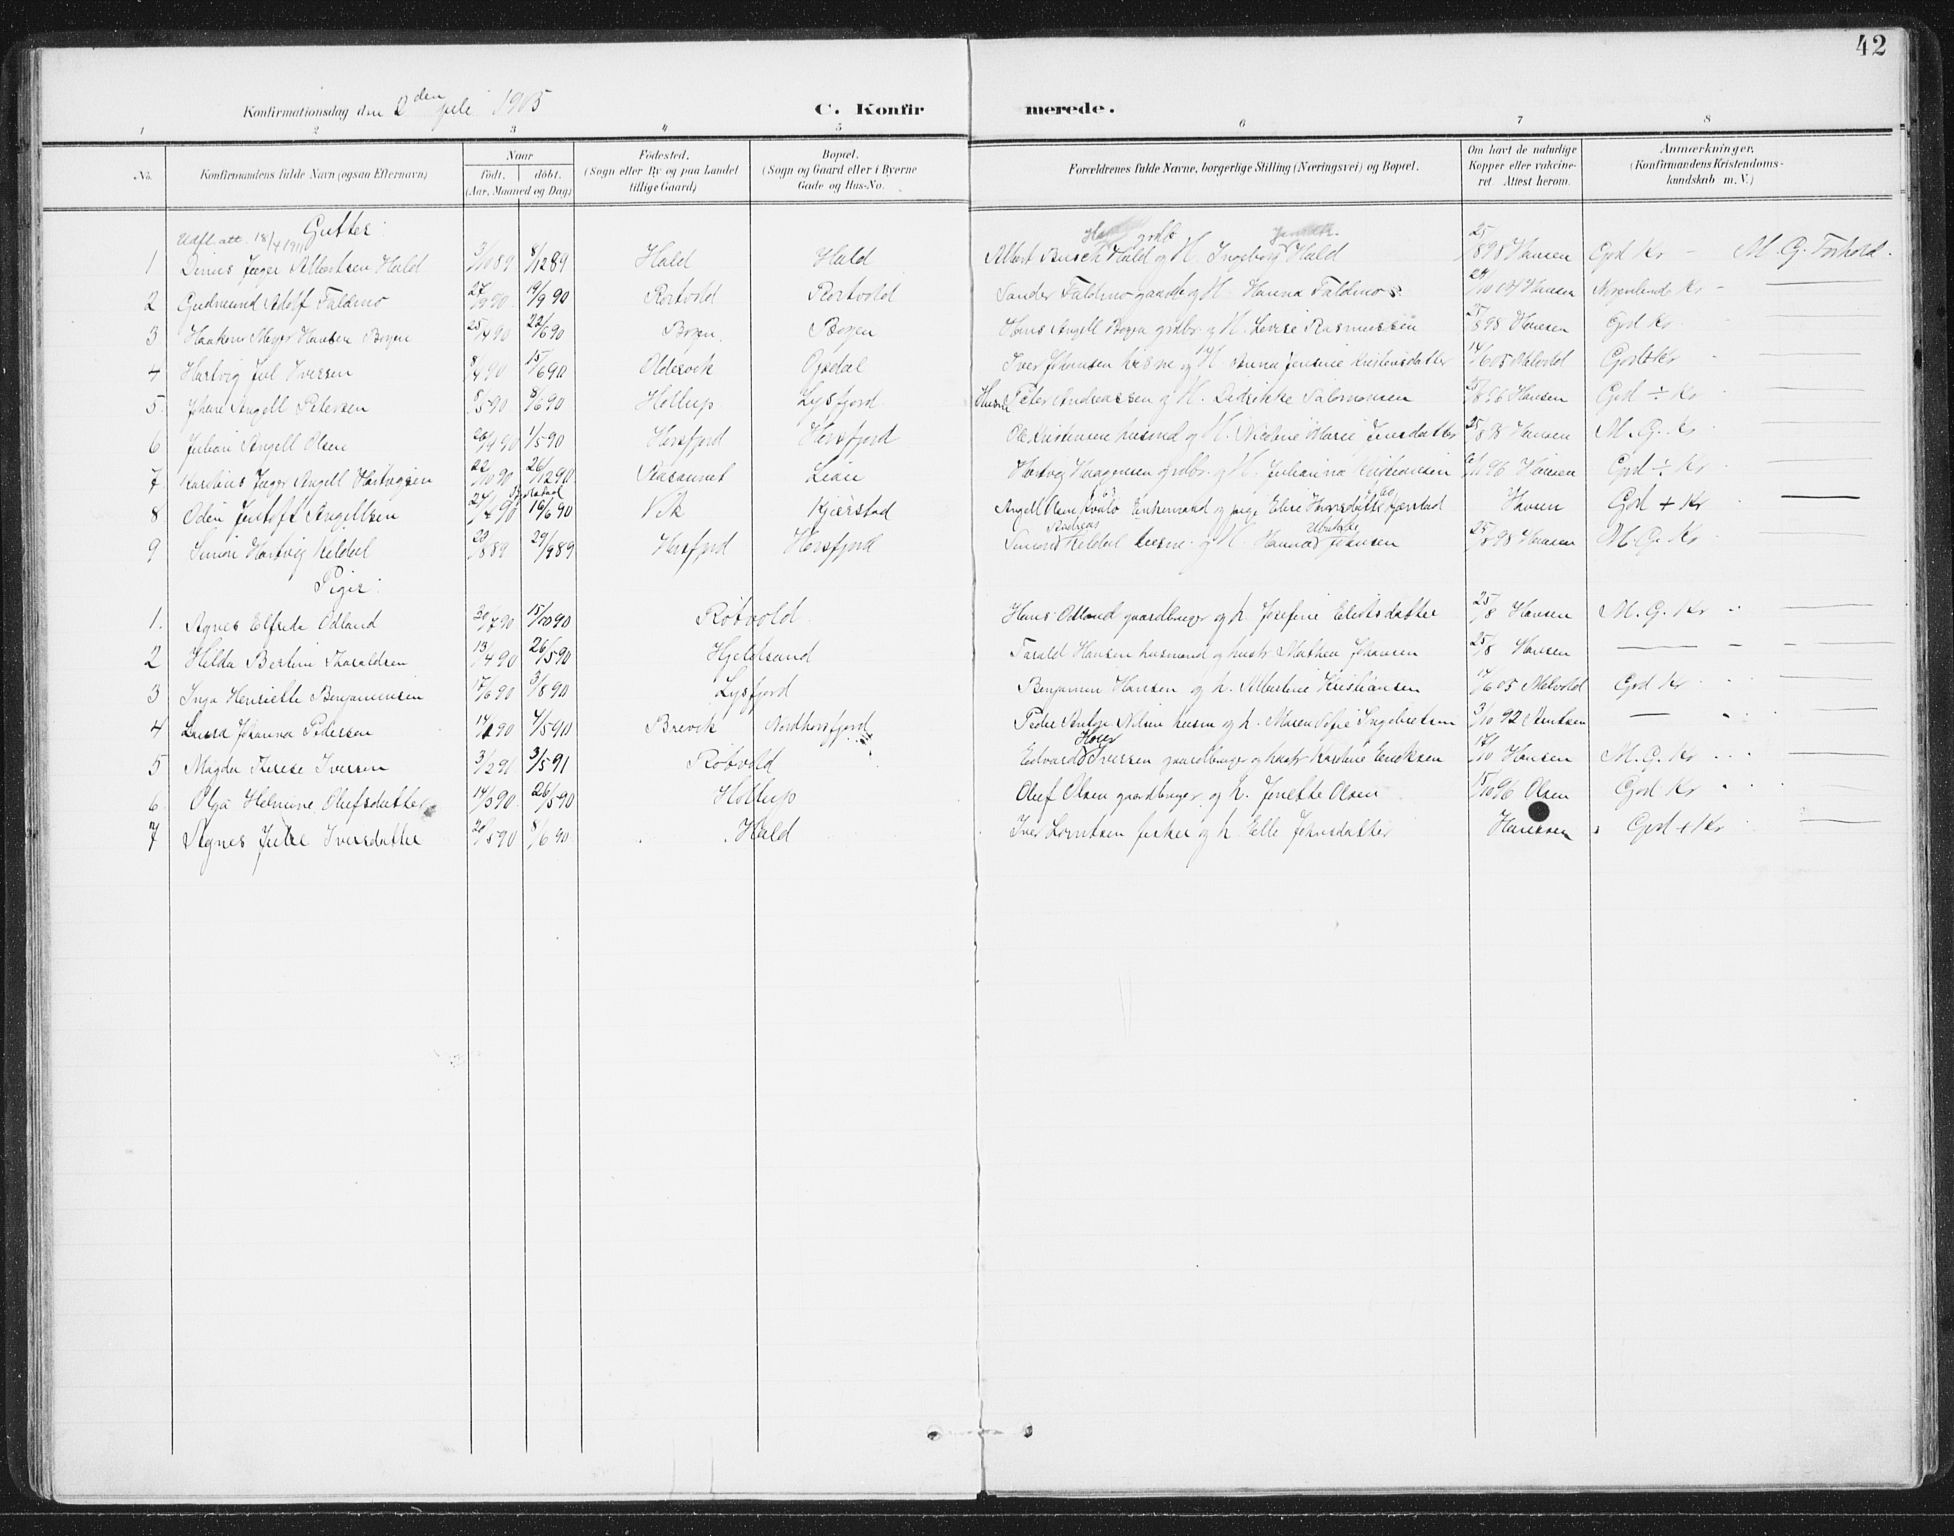 42
Konfirmationsdag den 2 den juli 1905 C. Konfirmerede.
1 2 3 4 5 6 7 8
No. Konfirmandens fulde Navn (ogsaa Efternavn) Naar født. døbt. (Aar, Maaned og Dag) Fødested. (Sogn eller By og paa Landet tillige Gaard) Bopæl. (Sogn og Gaard eller i Byerne Gade og Hus-No. Forældrenes fulde Navne, borgerlige Stilling (Næringsvei) og Bopæl. Om havt de naturlige Kopper eller vakcineret. Attest herom. Anmærkninger. (Konfirmandens Kristendomskundskab m. V.)
Gutter:
Udfl. att. 18/4 1911
1 Albertsen Hald 3/10 89 8/12 89 Hald Hald Albert Busch Hald og H. Ingeborg Hald 25/8 98 Hansen God Kr - M. G. Forhold.
2 Gudmund Adolf Faldmo 27/9 90 19/9 90 Rortvold Rortvold Sander Faldmo gaardb og H. Hanna Faldmo Hansen Kr -
3 Haakon Meyer Hansen Bogen 25/4 90 22/6 90 Bogen Bogen Hans Angell Bogen grdbr. og H. Lovise Rasmussen 25/8 98 Hansen God Kr
4 Hartvig Jul Iversen 8/4 90 15/6 90 Oldervik Opdal Iver Johansen husme og H. Anna Jensine Kristensdatter 14/6 05 Melvold God Kr
5 Johan Angell Petersen 8/5 90 8/6 90 Holtup Lysfjord Husm Peter Andreassen og H. Didrikke Salomonsen 25/8 96 Hansen God ÷ Kr
6 Julian Angell Olsen 26/4 90 1/5 90 Horsfjord Horsfjord Ole Kristensen husmd og H. Nicoline Marie Jensdatter 25/8 98 Hansen M. G. Kr
7 Karolius Jæger Angell Hartvigsen 22/10 90 26/12 90 Lian Hartvig Haagensen grdbr. og H. Julianna 96 Hansen God ÷ Kr
8 Odin Jentoft Angellsen 24/4 90 16/6 90 Vik Kjerstad Angell Olsen Enkemand og pige Elise Hansdatter Kjærstad Hansen God + Kr
9 Simon Hartvig Keldal 20/8 89 29/9 89 Horsfjord Horsfjord Simon Andreas Keldal husme. og H. Hanna Ulrikke Johansen 25/8 98 Hansen M. G. Kr
Piger:
1. Agnes Elfrida Odland 30/7 90 15/10 90 Røtvold Hans Odland gaardbruger og h. Josefine Eliasdatter 25/8 Hansen M. G. Kr "
2 Hilda Bertine Tharaldsen 13/4 90 26/5 90 Hjeldsand Tarald Hansen husmand og hustr Mathea Johansen 25/8 Hansen
3 Inga Henriette Benjaminsen 17/6 90 3/8 90 Lysfjord Benjamin Hansen og h. Albertine Kristiansen 17/6 05 Melvold God Kr
4 Laura Johanna Pedersen 14/1 90 4/5 90 Brevik Nordhorsfjord Peder Antze Nilsen husm og h. Maren Sofie Ingebrigtsen 3/10 92 Arntsen
5 Magda Terese Iversen 3/2 91 3/5 91 Røtvold Edvard Hoier Iversen gaardbruger og hustr Kardine Eriksen 17/10 Hansen M. G. Kr
6. Olga Helmine Olufsdatter 14/3 90 26/5 90 Holtup Oluf Olsen gaardbruger og h. Jenette Olsen 15/10 96 Olsen God Kr "
7 Agnes Julie Iversdatter 20/5 90 8/6 90 Hald Iver Lorntsen fisker og h Elle Johnsdatter Hanssen God + Kr